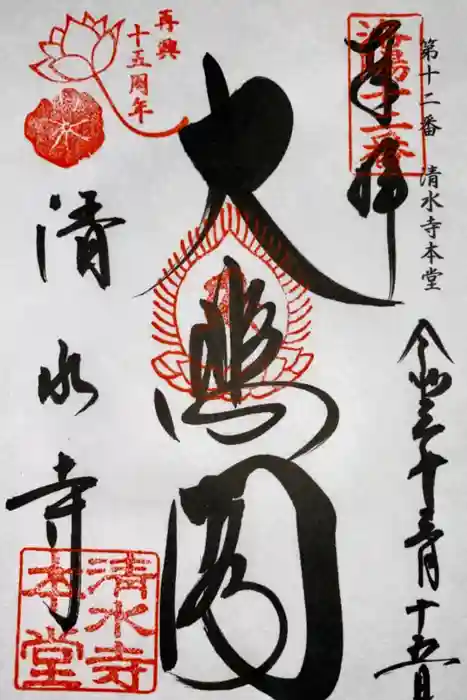 第十二番 清水寺本堂
奉拝
洛陽十二番
令和
十五日
大悲閣
再興
十五周年
清水寺
清水寺
本堂